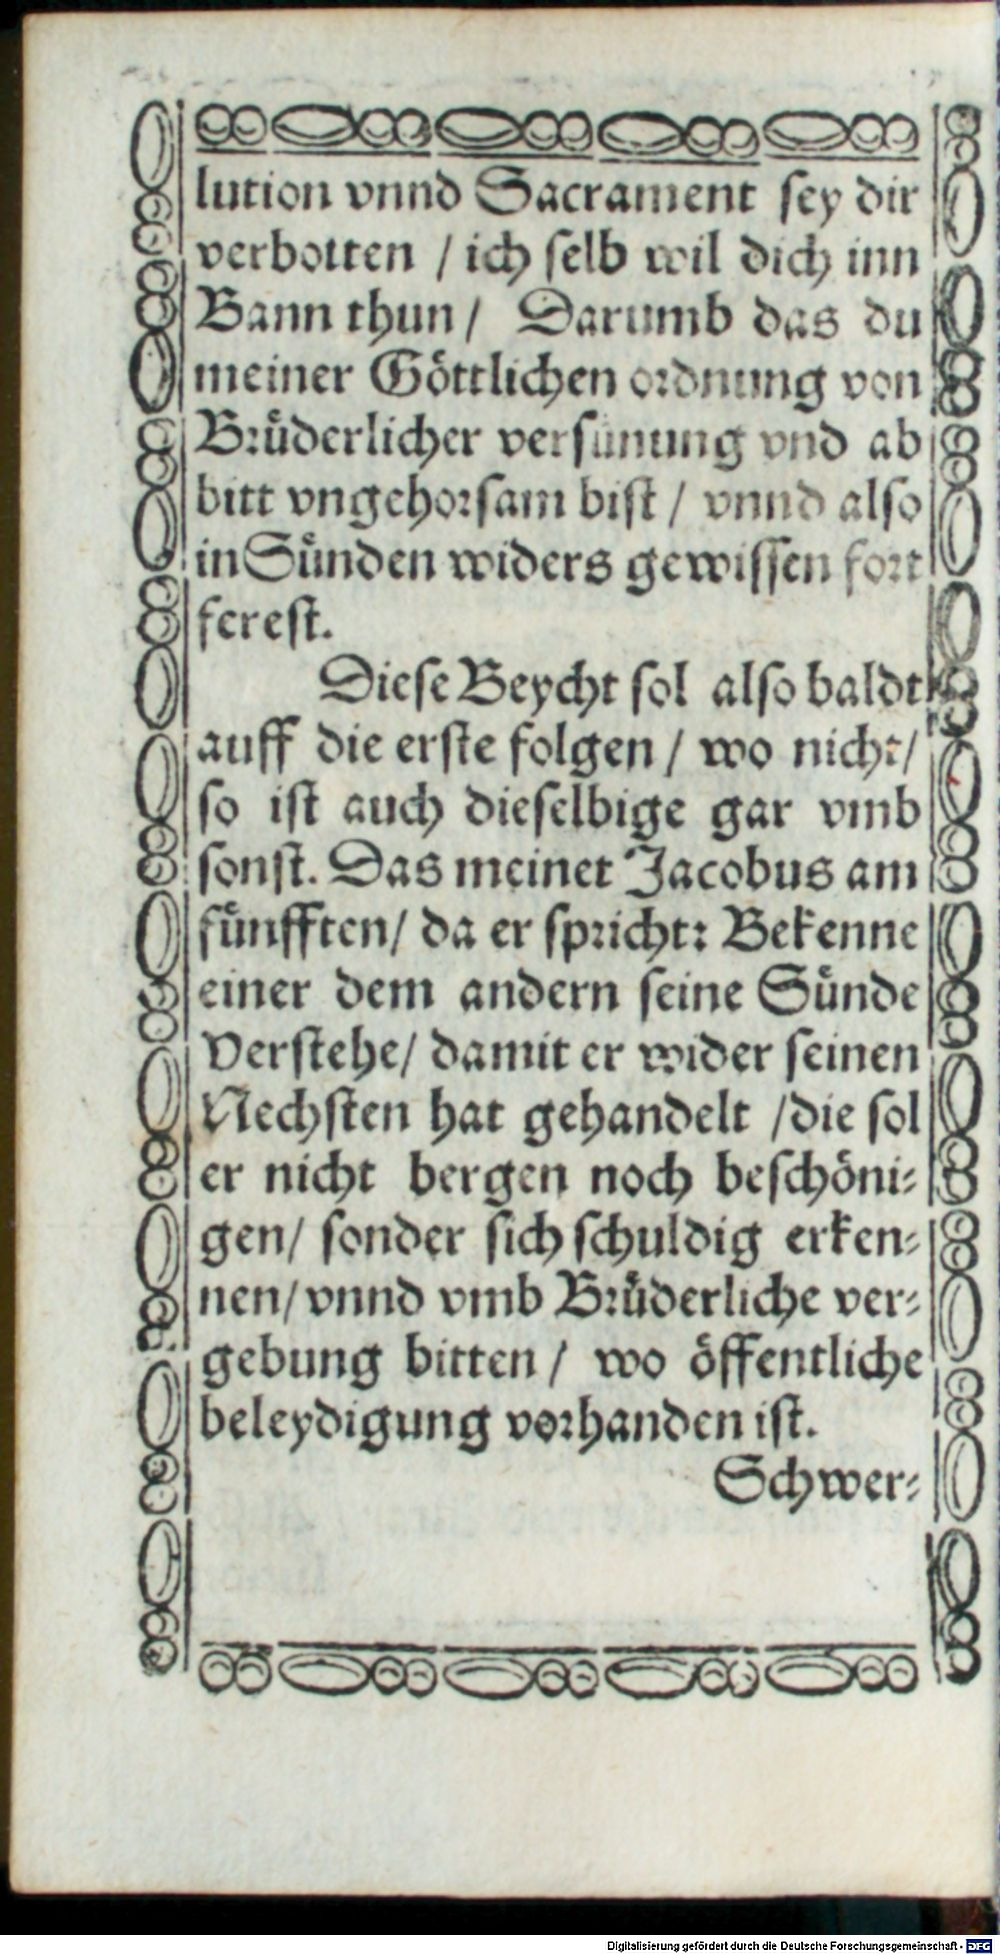 lution vnnd Sacrament sey dir
verbotten / ich selb wil dich inn
Bann thun / Darumb das du
meiner Göttlichen ordnung von
Brüderlicher versünung vnd ab
bitt vngehorsam bist / vnnd also
in Sünden widers gewissen fort
ferest.
Diese Beycht sol also baldt
auff die erste folgen / wo nicht /
so ist auch dieselbige gar vmb
sonst. Das meinet Jacobus am
fünfften / da er spricht: Bekenne
einer dem andern seine Sünde
Verstehe / damit er wider seinen
Nechsten hat gehandelt / die sol
er nicht bergen noch beschöni-
gen / sonder sich schuldig erken-
nen / vnnd vmb Brüderliche ver-
gebung bitten / wo öffentliche
beleydigung vorhanden ist.
Schwer-
Digitalisierung gefördert durch die Deutsche Forschungsgemeinschaft - DFG